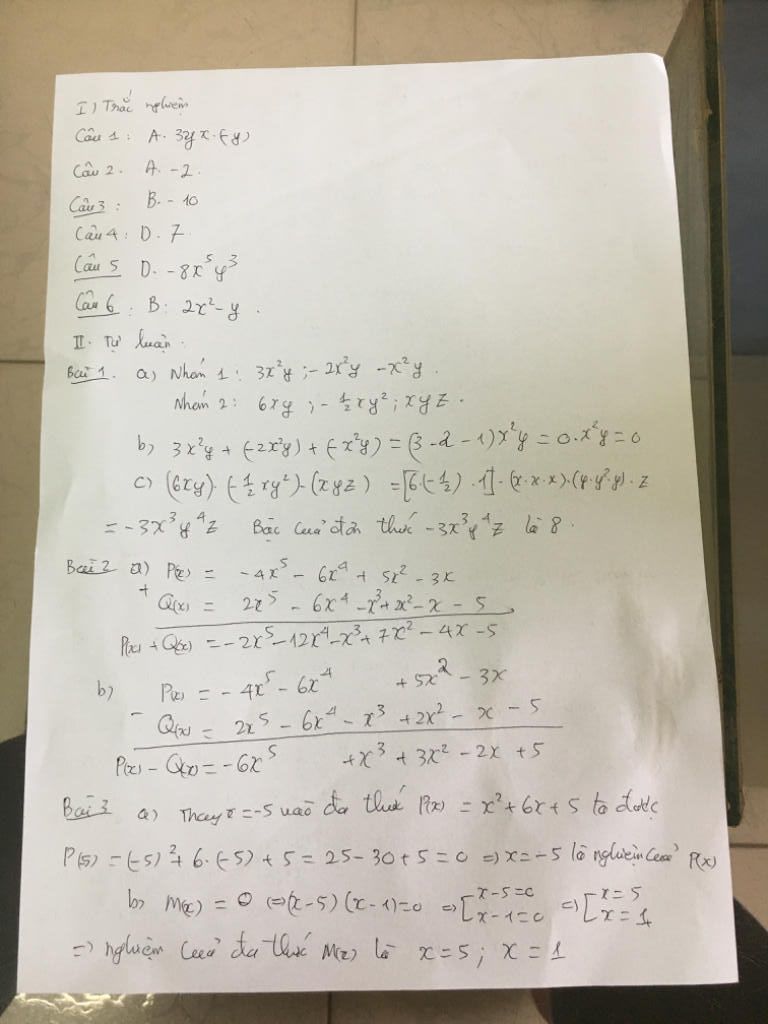 I) Trắc nghiệm
Câu 1 : A. 3yx.(-y)
Câu 2. A. -2.
Câu 3 : B. - 10
Câu 4 : D. 7.
Câu 5 D. -8x⁵y³
Câu 6 : B: 2x² - y .
II. Tự luận.
Bài 1. a) Nhóm 1 : 3x²y ; - 2x²y - x²y .
Nhóm 2 : 6xy ; - 1/2 xy² ; xyz .
b) 3x²y + (-2x²y) + (-x²y) = (3 - 2 - 1) x²y = 0.x²y = 0
c) (6xy) . (-1/2 xy²) . (xyz) = [6.(-1/2) . 1] . (x.x.x).(y.y².y) . z
= -3x³y⁴z Bậc của đơn thức -3x³y⁴z là 8 .
Bài 2 a) P(x) = -4x⁵ - 6x⁴ + 5x² - 3x
+ Q(x) = 2x⁵ - 6x⁴ - x³ + 2x² - x - 5
P(x) + Q(x) = -2x⁵ - 12x⁴ - x³ + 7x² - 4x - 5
b) P(x) = - 4x⁵ - 6x⁴ + 5x² - 3x
- Q(x) = 2x⁵ - 6x⁴ - x³ + 2x² - x - 5
P(x) - Q(x) = -6x⁵ + x³ + 3x² - 2x + 5
Bài 3 a) Thay x = -5 vào đa thức P(x) = x² + 6x + 5 ta được
P(5) = (-5)² + 6.(-5) + 5 = 25 - 30 + 5 = 0 => x = -5 là nghiệm của P(x)
b) M(x) = 0 <=> (x - 5) (x - 1) = 0 => [x - 5 = 0 x - 1 = 0 => [x = 5 x = 1
=> nghiệm của đa thức M(x) là x = 5 ; x = 1